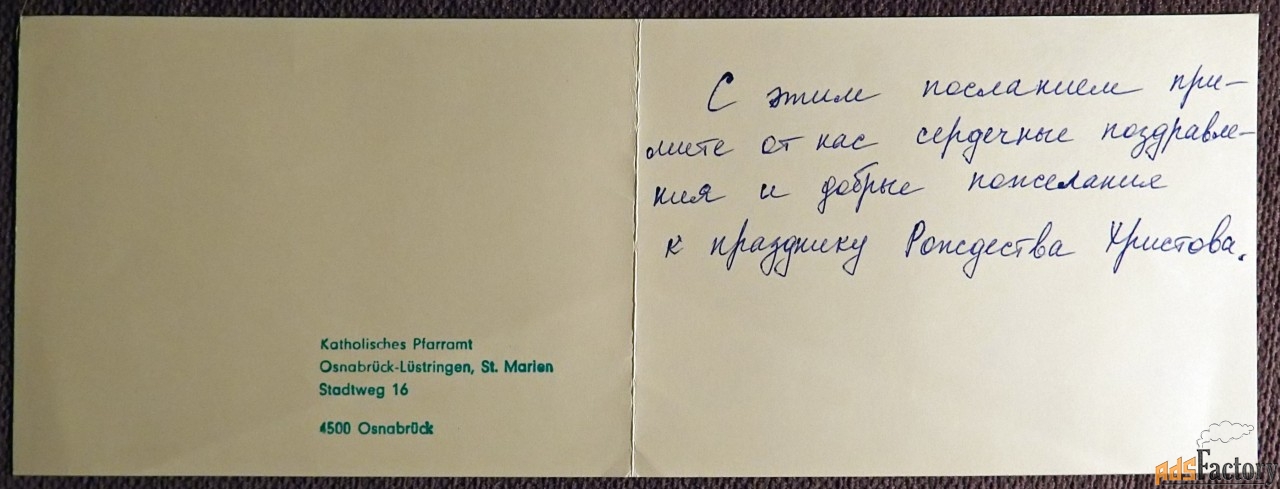 Katholisches Pfarramt
Osnabrück-Lüstringen, St. Marien
Stadtweg 16
4500 Osnabrück
С этим посланием при-
мите от нас сердечные поздравле-
ния и добрые пожелания
к празднику Рождества Христова.
AdsFactory